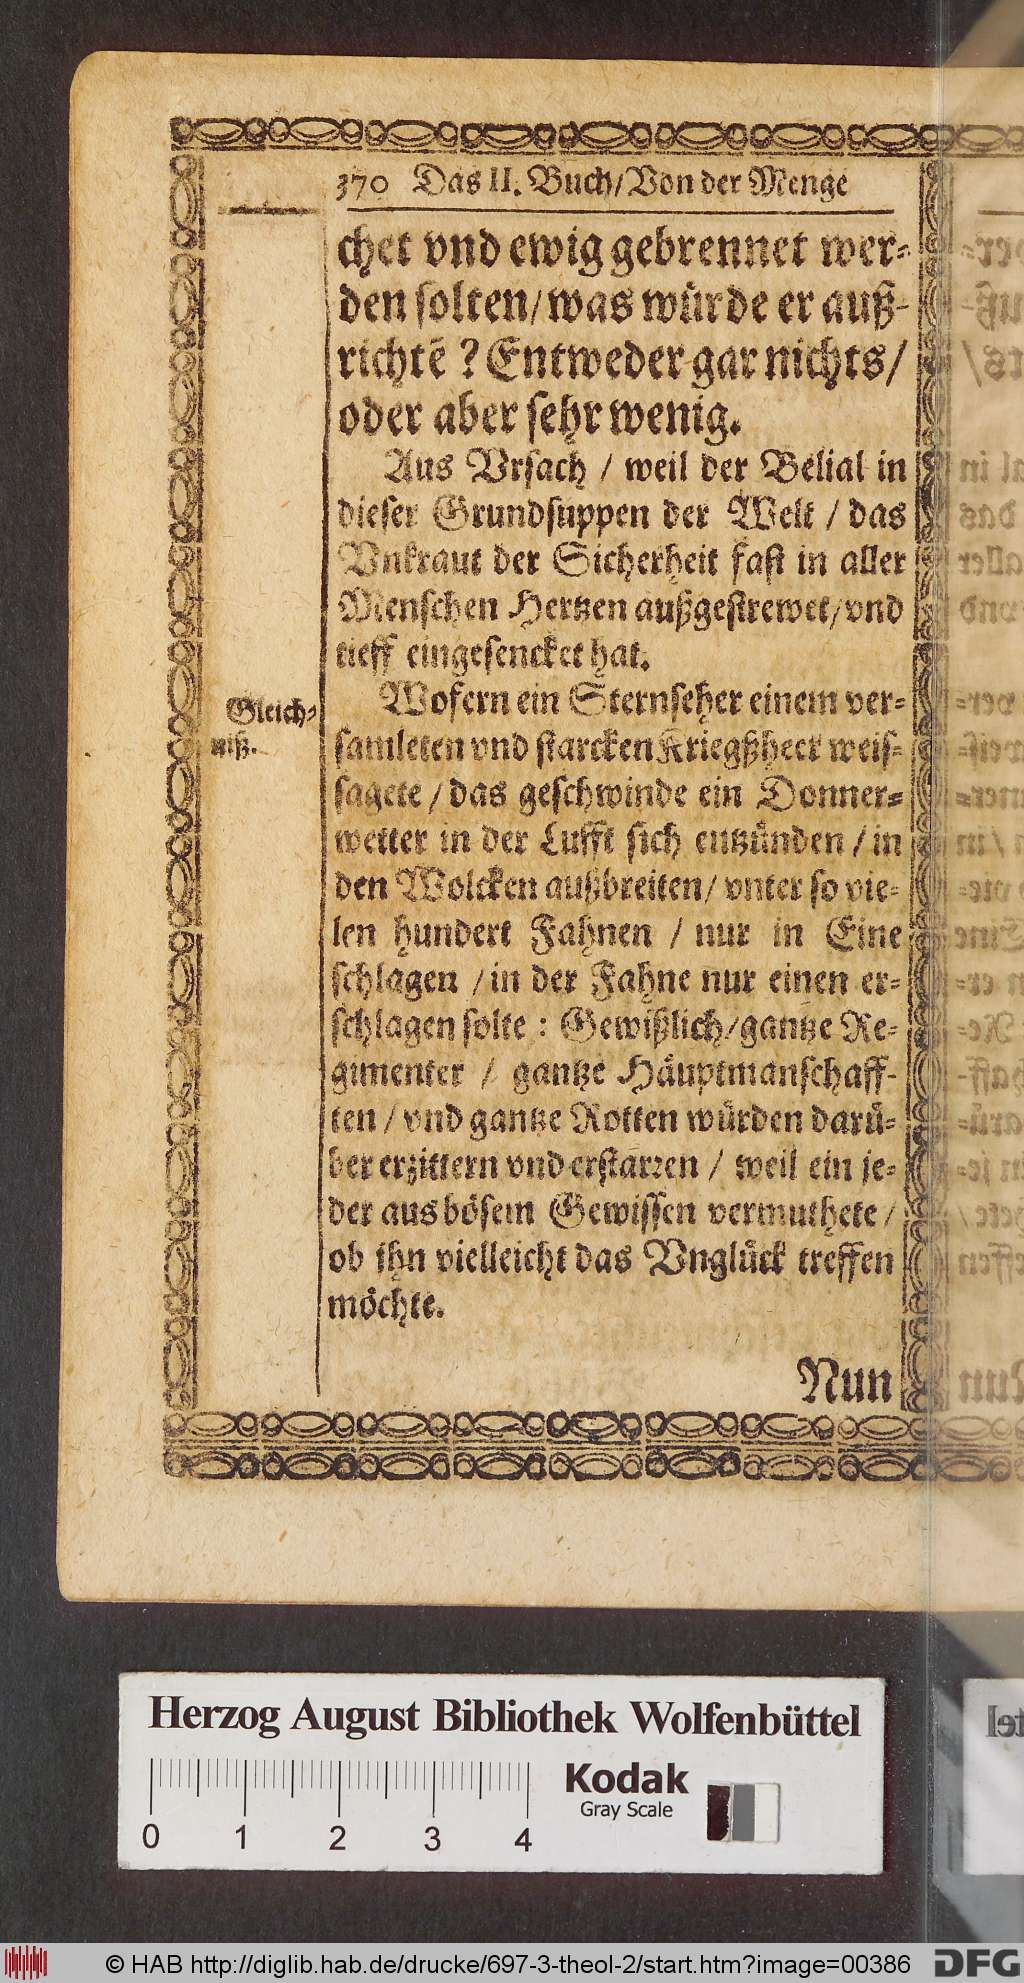 370 Das II. Buch/Von der Menge
chet vnd ewig gebrennet wer-
den solten/was würde er auß-
richtē? Entweder gar nichts/
oder aber sehr wenig.
Aus Vrsach / weil der Belial in
dieser Grundsuppen der Welt / das
Vnkraut der Sicherheit fast in aller
Menschen Hertzen außgestrewet/vnd
tieff eingesencket hat.
Gleich-
niß.
Wofern ein Sternseher einem ver-
samleten vnd starcken Kriegßheer weis-
sagete / das geschwinde ein Donner-
wetter in der Lufft sich entzünden / in
den Wolcken außbreiten/ vnter so vie-
len hundert Fahnen / nur in Eine
schlagen / in der Fahne nur einen er-
schlagen solte : Gewißlich/gantze Re-
gimenter / gantze Häuptmanschaff-
ten / vnd gantze Rotten würden darü-
ber erzittern vnd erstarꝛen / weil ein je-
der aus bösem Gewissen vermuthete /
ob ihn vielleicht das Vnglück treffen
möchte.
Nun
Herzog August Bibliothek Wolfenbüttel
Kodak
Gray Scale
0 1 2 3 4
© HAB http://diglib.hab.de/drucke/697-3-theol-2/start.htm?image=00386
DFG